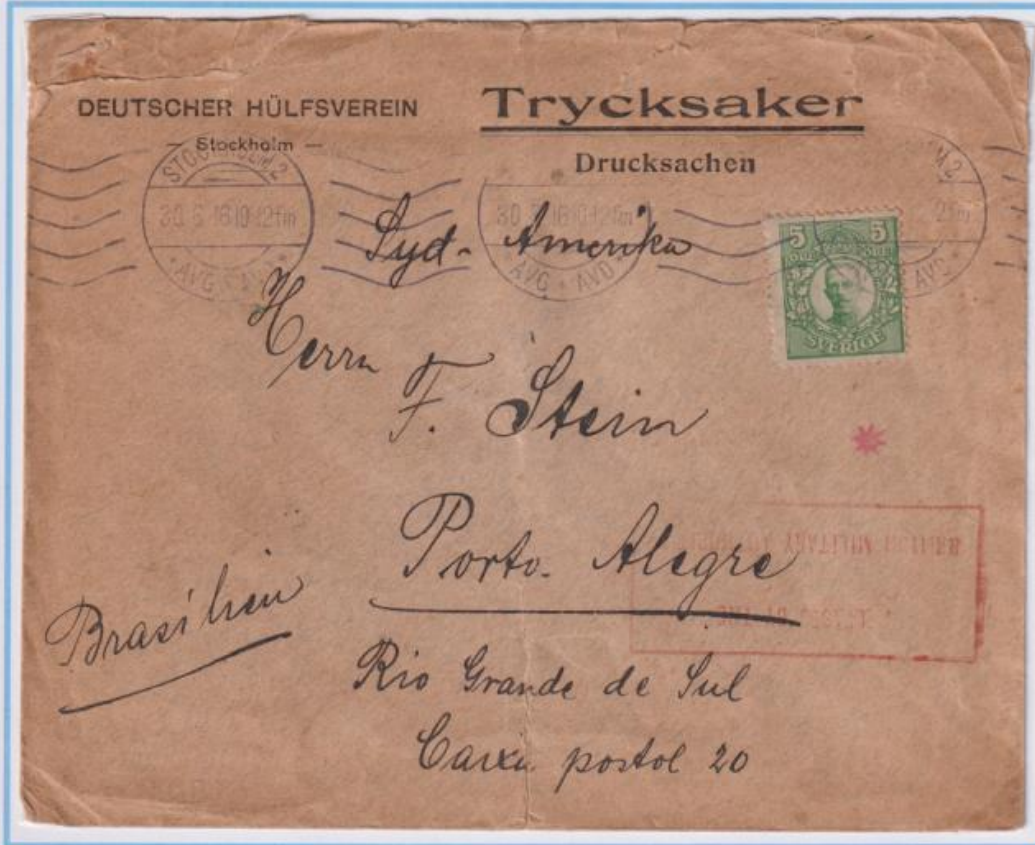 DEUTSCHER HÜLFSVEREIN
— Stockholm —
Trycksaker
Drucksachen
STOCKHOLM 2
30 6 16 10-12 fm
AVG AVD
30 16 10-12 fm
AVG AVD
M 2
2 fm
AVD
Syd-Amerika
5 5
SVERIGE
Herrn
F. Stein
Porto-Alegre
Brasilien
Rio Grande de Sul
Caixa postol 20
BRITISH MILITARY